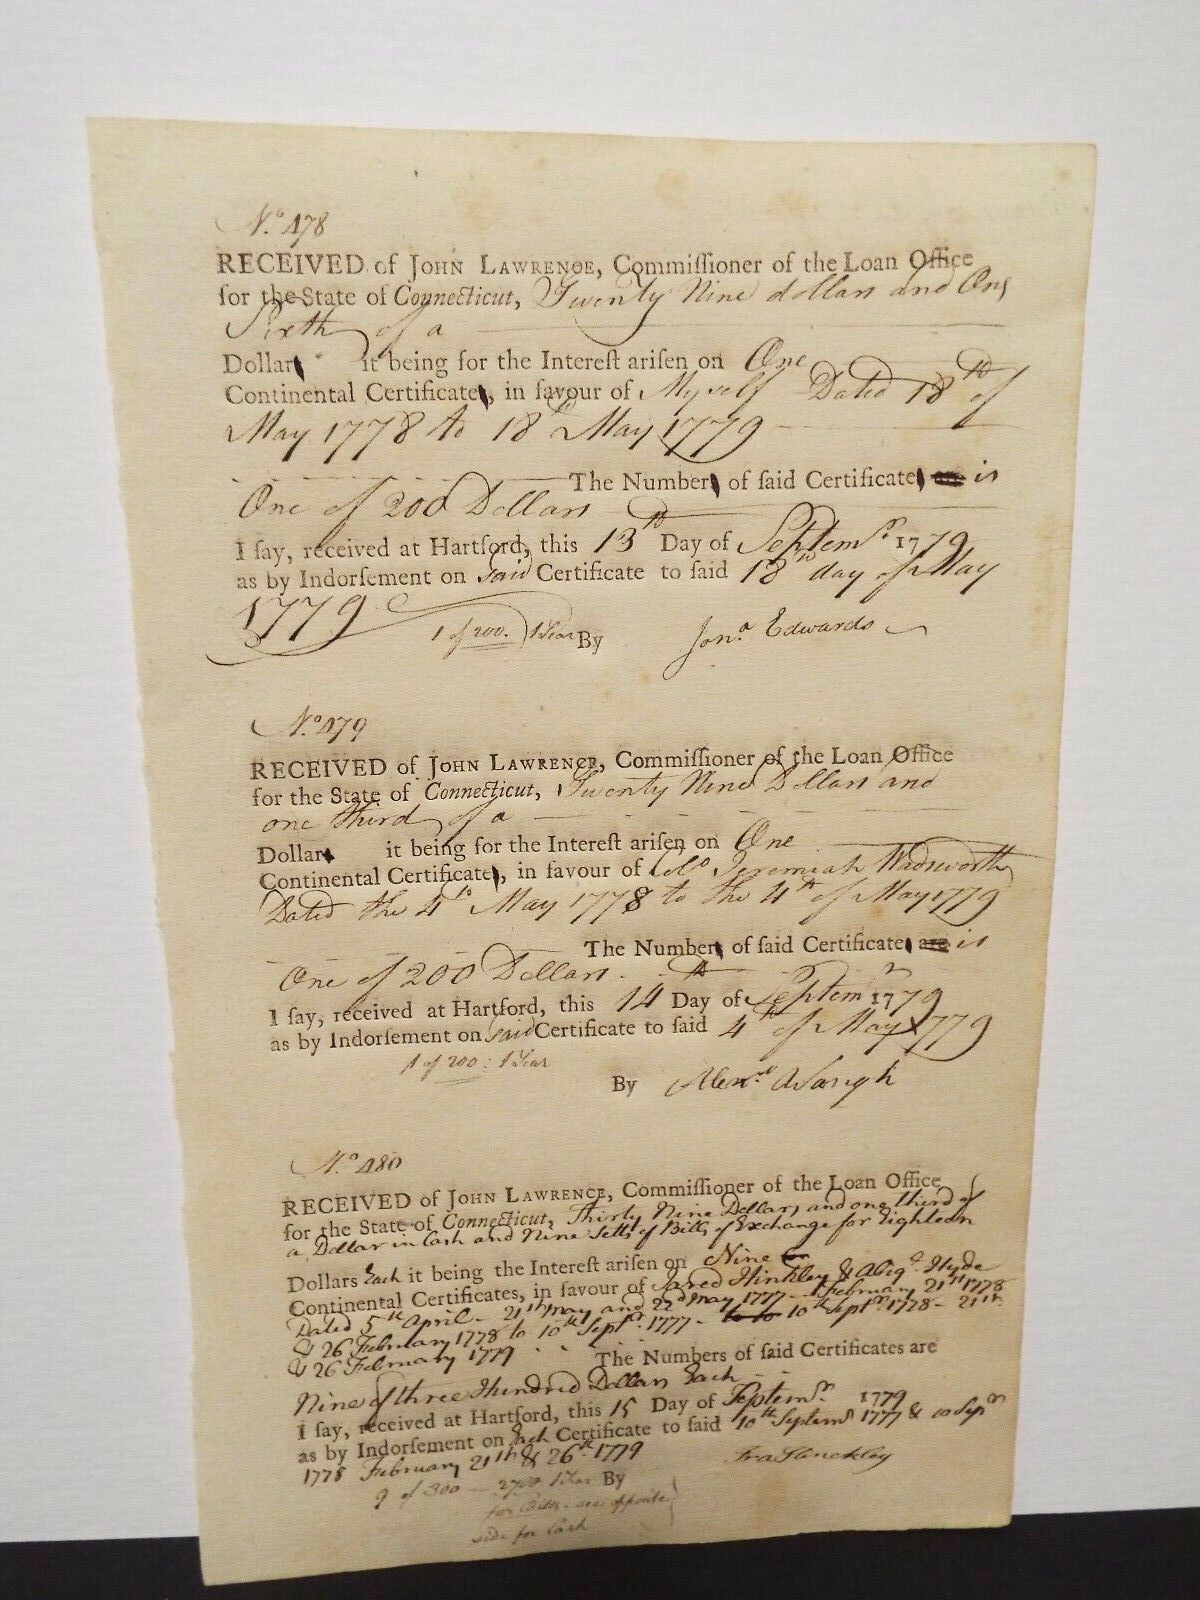 No. 478
RECEIVED of JOHN LAWRENCE, Commiſſioner of the Loan Office
for the State of Connecticut, Twenty Nine dollars and One
Sixth of a
Dollar it being for the Intereſt ariſen on One
Continental Certificate, in favour of Myself Dated 18th of
May 1778 to 18th May 1779
The Number of ſaid Certificate are is
One of 200 Dollars
I ſay, received at Hartford, this 13th Day of Septemr. 1779
as by Indorſement on said Certificate to ſaid 18th day of May
1779
1 of 200. 1 Year By Jona. Edwards
No. 479
RECEIVED of JOHN LAWRENCE, Commiſſioner of the Loan Office
for the State of Connecticut, Twenty Nine Dollars and
one third of a
Dollar it being for the Intereſt ariſen on One
Continental Certificate, in favour of Colo. Jeremiah Wadsworth
Dated the 4th May 1778 to the 4th of May 1779
The Number of ſaid Certificate are is
One of 200 Dollars
I ſay, received at Hartford, this 14th Day of Septemr 1779
as by Indorſement on said Certificate to ſaid 4th of May 1779
1 of 200: 1 Year
By Alexr. Waugh
No. 480
RECEIVED of JOHN LAWRENCE, Commiſſioner of the Loan Office
for the State of Connecticut, Thirty Nine Dollars and one third of
a Dollar in Cash and Nine Setts of Bills of Exchange for Eighteen
Dollars Each it being the Intereſt ariſen on Nine
Continental Certificates, in favour of Jared Hinkley & Abigl. Hyde
Dated 5th April - 21th May and 22d May 1777 - February 21th 1778
& 26 February 1778 to 10th Septr. 1777 - to to 10th Septr. 1778 - 21th
& 26 February 1779
The Numbers of ſaid Certificates are
Nine of three Hundred Dollars Each
I ſay, received at Hartford, this 15 Day of Septemr. 1779
as by Indorſement on Each Certificate to ſaid 10th Septemr 1777 & 10 Sepr
1778 February 21th & 26th 1779
9 of 300 - 2700 1 Year By
for Bills - see opposite
side for Cash